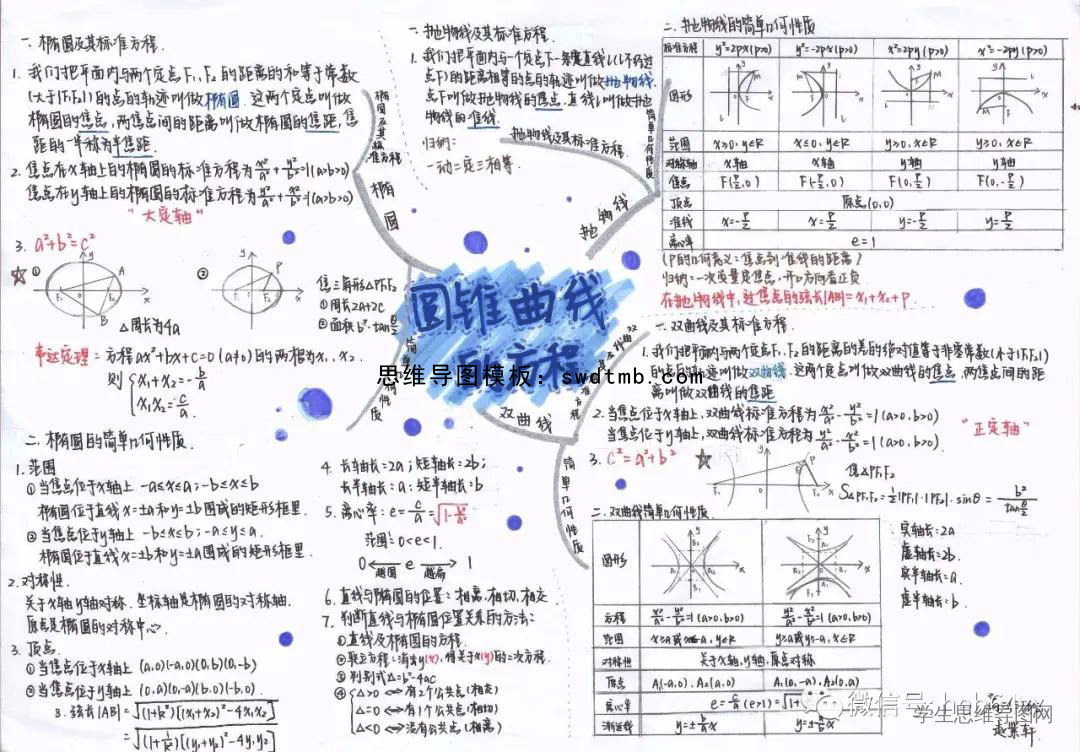 一. 椭圆及其标准方程.
1. 我们把平面内与两个定点F₁,F₂的距离的和等于常数
(大于|F₁F₂|)的点的轨迹叫做椭圆. 这两个定点叫做
椭圆的焦点,两焦点间的距离叫做椭圆的焦距,焦
距的一半称为半焦距.
2. 焦点在x轴上的椭圆的标准方程为x²/a²+y²/b²=1(a>b>0)
焦点在y轴上的椭圆的标准方程为y²/a²+x²/b²=1(a>b>0)
"大定轴"
3. a²+b²=c²
① A B F₁ F₂ x
△周长为4a
② P F₁ F₂ x
焦三角形△PF₁F₂
①周长2a+2c
②面积b²·tanθ/2
韦达定理: 方程ax²+bx+c=0(a≠0)的两根为x₁、x₂.
则 x₁+x₂=-b/a
x₁x₂=c/a.
二. 椭圆的简单几何性质.
1. 范围
①当焦点位于x轴上 -a≤x≤a;-b≤x≤b
椭圆位于直线x=±a和y=±b围成的矩形框里.
②当焦点位于y轴上 -b≤x≤b;-a≤y≤a.
椭圆位于直线x=±b和y=±a围成的矩形框里.
2. 对称性.
关于x轴y轴对称. 坐标轴是椭圆的对称轴.
原点是椭圆的对称中心
3. 顶点.
①当焦点位于x轴上 (a,0)(-a,0)(0,b)(0,-b)
②当焦点位于y轴上 (0,a)(0,-a)(b,0)(-b,0).
3. 弦长|AB|=√(1+k²)[(x₁+x₂)²-4x₁x₂]
=√(1+1/k²)[(y₁+y₂)²-4y₁y₂]
4. 长轴长=2a;短轴长=2b;
长半轴长:a;短半轴长:b
5. 离心率: e=c/a=√1-b²/a²
范围:0<e<1.
0 ← e → 1
越圆 越扁
6. 直线与椭圆的位置:相离,相切,相交
7. 判断直线与椭圆位置关系的方法:
①直线及椭圆的方程.
②联立方程:消去y(x),得关于x(y)的二次方程.
③判别式△=b²-4ac
④ △>0 ⇔ 有2个公共点(相交)
△=0 ⇔ 有1个公共点(相切)
△<0 ⇔ 没有公共点(相离)
一. 抛物线及其标准方程.
1. 我们把平面内与一个定点F一条定直线l(l不经过
点F)的距离相等的点的轨迹叫做抛物线.
点F叫做抛物线的焦点,直线l叫做抛
物线的准线.
归纳:
一动二定三相等.
椭圆及其标准方程
椭圆
抛物线及其标准方程
简单几何性质
抛物线
圆锥曲线
与方程
思维导图模板:swdtmb.com
双曲线
简单几何性质
二. 抛物线的简单几何性质
标准方程 y²=2px(p>0) y²=-2px(p>0) x²=2py(p>0) x²=-2py(p>0)
图形
范围 x≥0,y∈R x≤0,y∈R y≥0,x∈R y≤0,x∈R
对称轴 x轴 x轴 y轴 y轴
焦点 F(p/2,0) F(-p/2,0) F(0,p/2) F(0,-p/2)
顶点 原点(0,0)
准线 x=-p/2 x=p/2 y=-p/2 y=p/2
离心率 e=1
(P的几何意义:焦点到准线的距离)
归纳:一次变量是焦点,开口方向看正负
在抛物线中,过焦点的弦长|AB|=x₁+x₂+p.
一. 双曲线及其标准方程.
1. 我们把平面内与两个定点F₁、F₂的距离的差的绝对值等于非零常数(小于|F₁F₂|)
的点的轨迹叫做双曲线. 这两个定点叫做双曲线的焦点,两焦点间的距
离叫做双曲线的焦距
2. 当焦点位于x轴上,双曲线标准方程为x²/a²-y²/b²=1(a>0,b>0)
当焦点位于y轴上,双曲线标准方程为y²/a²-x²/b²=1(a>0,b>0).
"正定轴"
3. c²=a²+b²
焦△PF₁F₂
S△PF₁F₂=½|PF₁|·|PF₂|·sinθ=b²/tanθ/2
二. 双曲线简单几何性质.
图形
方程 x²/a²-y²/b²=1(a>0,b>0) y²/a²-x²/b²=1(a>0,b>0)
范围 x≥a或x≤-a,y∈R y≥a或y≤-a,x∈R
对称性 关于x轴,y轴,原点对称
顶点 A₁(-a,0),A₂(a,0) A₁(0,-a),A₂(0,a)
离心率 e=c/a(e>1)=√1+
渐近线 y=±b/a x y=±a/b x
实轴长:2a
虚轴长:2b.
实半轴长:a.
虚半轴长:b.
微信号:
学生思维导图网